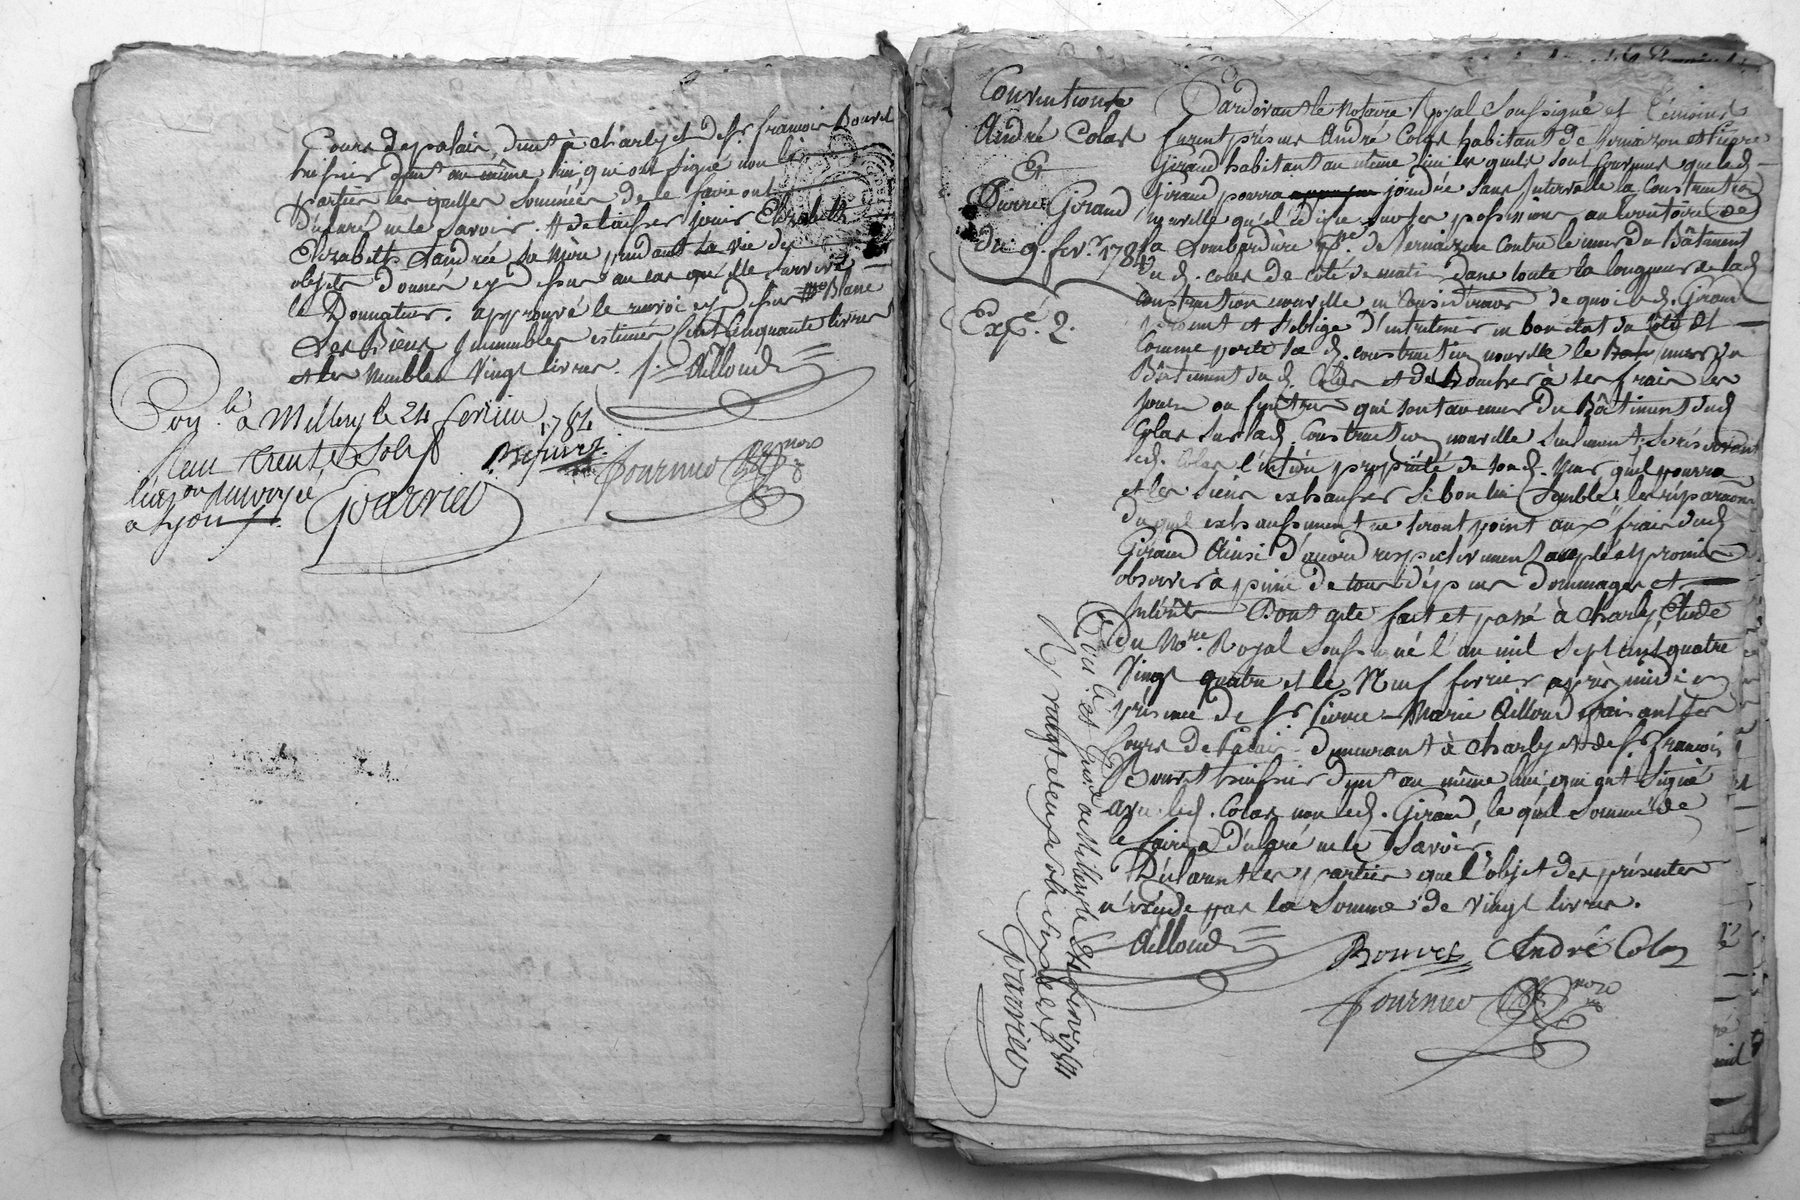 Cours de palais, demt à charly et de Sr francois Bouvet
huissier demt au même lieu qui ont signé non les
parties les quelles sommées de le faire ont
Déclaré ne le savoir. Et de laisser jouir Elizabeth
Elizabeth Andrée sa Mère pendant la vie des
objets donnés cy dessus au cas qu'elle survive
le Donnateur. approuvé le renvoi cy dessus Blanc
Les Biens Immeubles estimés Cent Cinquante livres
et les Meubles Vingt livres. Ailloud
Con. lé à Millery le 24 fevrier 1784
Reçu trente sols
Bouvet
Fournier nore
à Lyon
Gvarrier
Conventions
André Colas
Et
Pierre Giraud
Du 9. fevr. 1784
Expé. 2.
Pardevant le Notaire Royal soussigné et témoins
furent présens André Colas habitant de Vernaizon et Pierre
Giraud habitant au même lieu les quels sont convenus que led.
Giraud pourra joindre sans Intervale la Construction
nouvelle qu'il Edifie sur ses possessions au territoire de
la Lombardière psse. de Vernaizon contre le mur du Bâtiment
du d. colas de coté de matin dans toute la longueur de lad.
construction nouvelle en Considération de quoi led. Giraud
promet et s'oblige D'entretenir en bon état du côté et
comme porte la d. construction nouvelle le mur du
Bâtiment dud. Colas et de Boucher à ses frais les
jours ou fenêtres qui sont au mur du Bâtiment dud.
Colas sur lad. Construction nouvelle seulement, se réservant
led. Colas l'entière propriété de son d. mur quel pourra
et les siens exhausser si bon lui semble, les réparations
du quel exhaussement ne seront point aux frais dud.
Giraud Ainsi d'accord respectivement accepté et promis
observer à peine de tous dépens dommages et
Intérêts Dont acte fait et passé à Charly Etude
du Nore. Royal soussigné l'an mil sept cent quatre
Vingt quatre et le Neuf fevrier après midi en
présence de Sr. Pierre Marie Ailloud faisant ses
Cours de Palais demeurant à Charly et de Sr. francois
Bouvet huissier demt au même lieu qui ont signé
avec led. Colas non led. Giraud, le quel sommé de
le faire a Déclaré ne le Savoir.
Déclarent les parties que l'objet des présentes
n'excède pas la Somme de Vingt livres.
Ailloud Bouvet André Colas
Fournier nore
Con. lé et Cure à Millery le 24 fevr 1784
R. vingt deux sols six deniers
Gvarrier